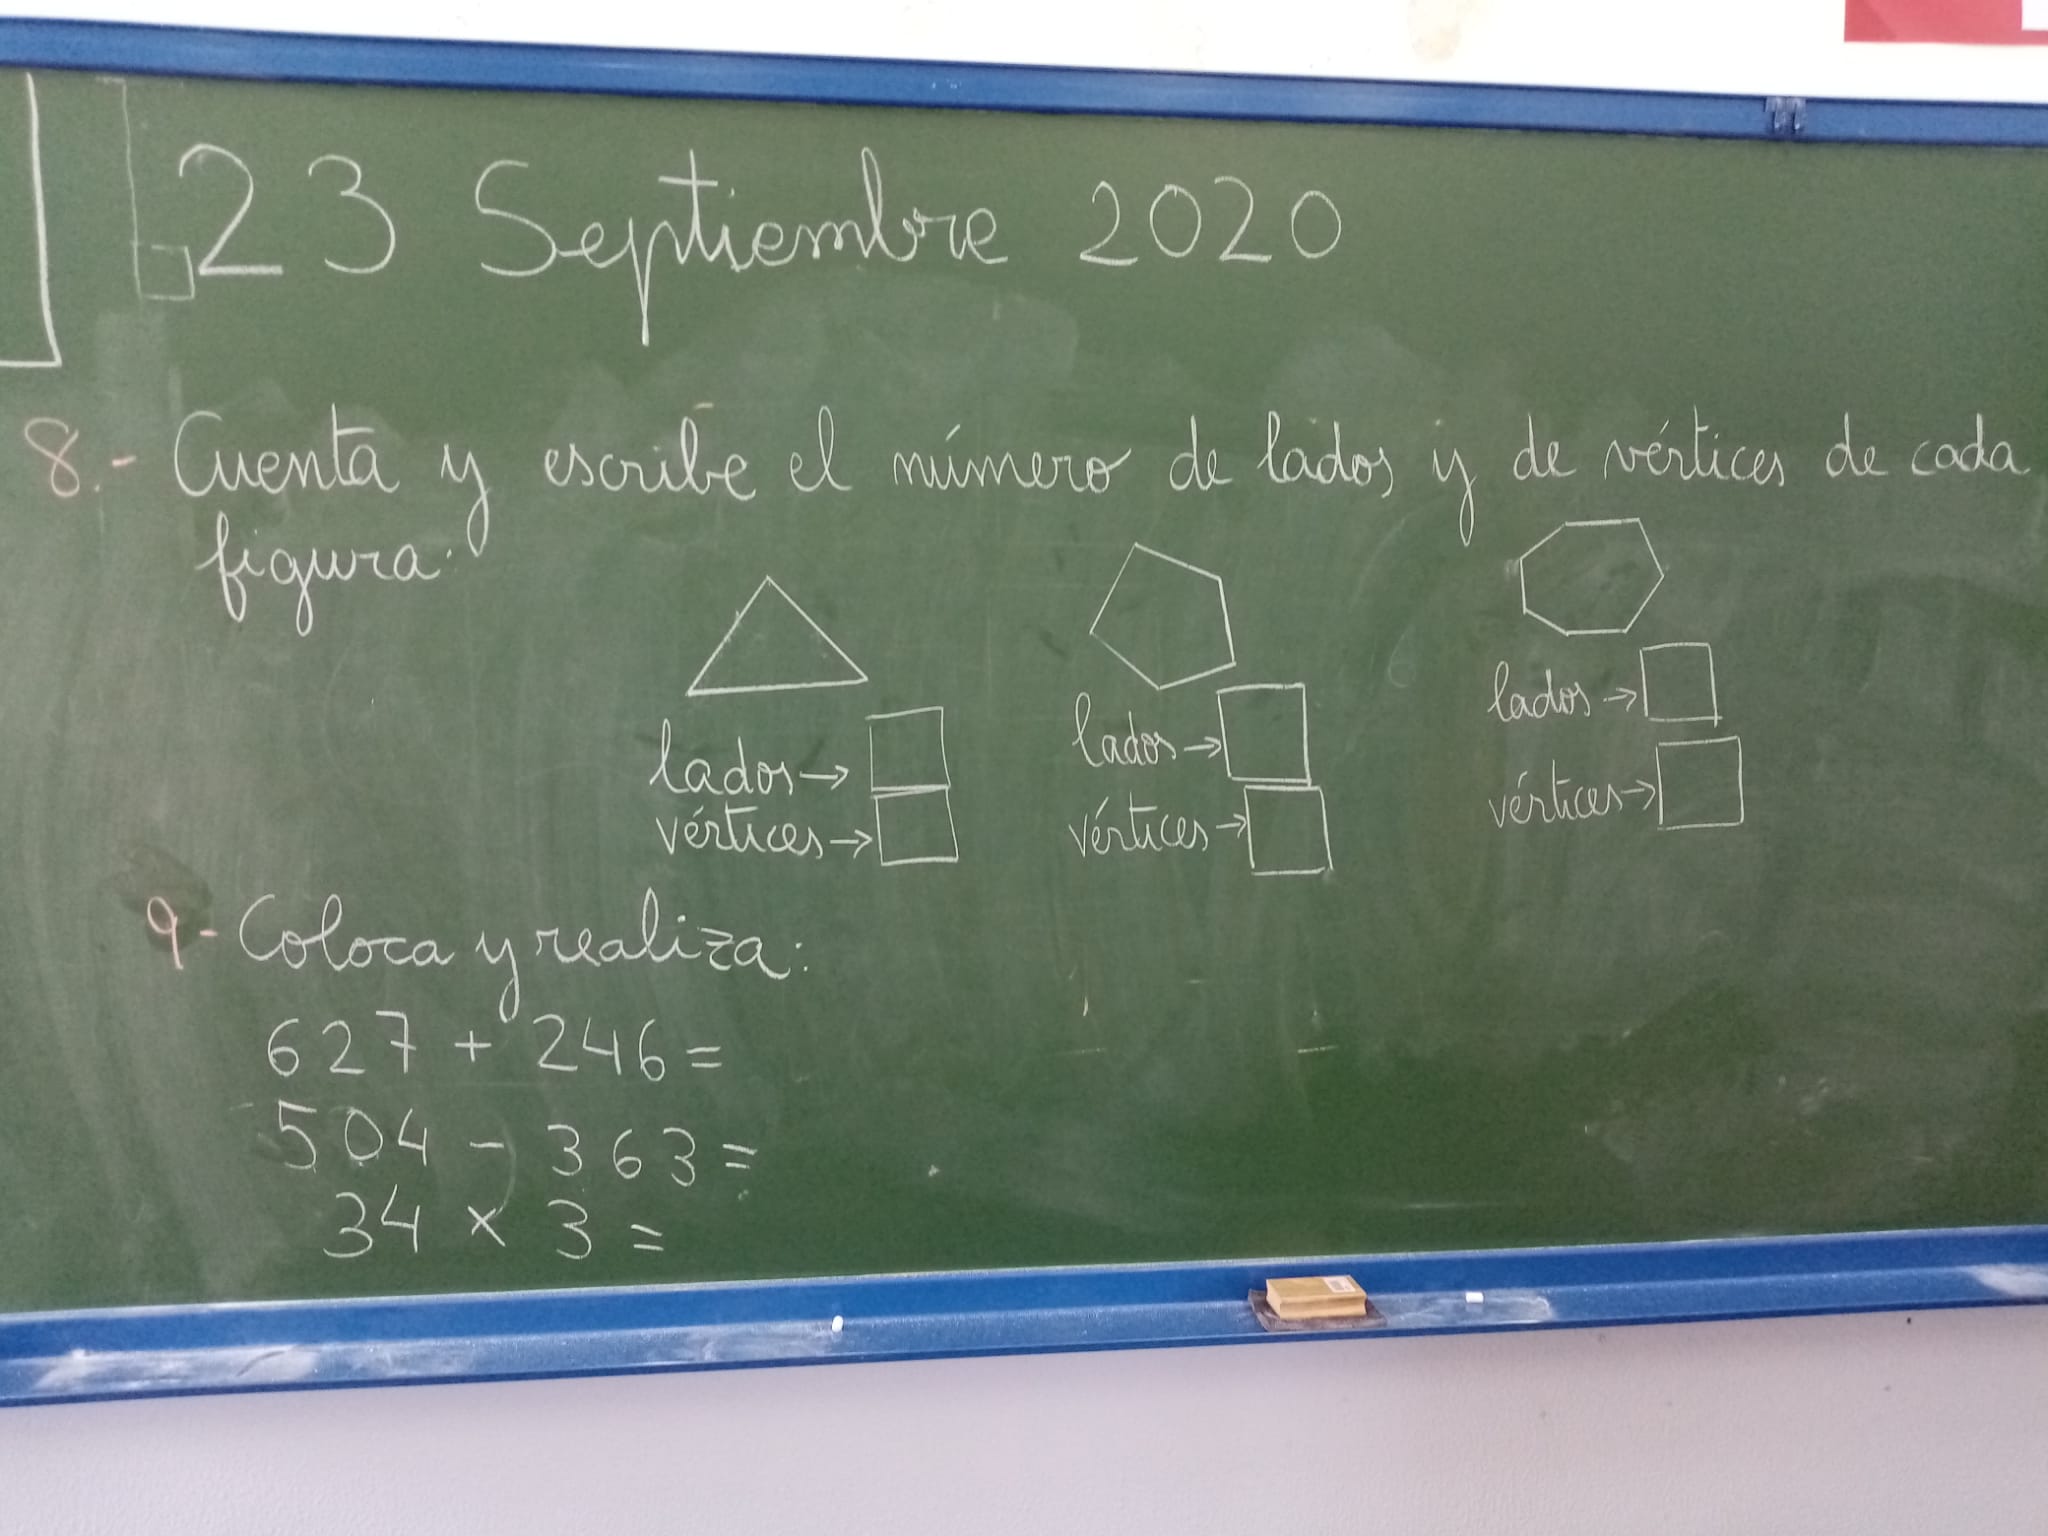 23 Septiembre 2020
8.- Cuenta y escribe el número de lados y de vértices de cada
figura.
lados→
vértices→
lados→
vértices→
lados→
vértices→
9- Coloca y realiza:
627 + 246=
504 - 363=
34 x 3 =